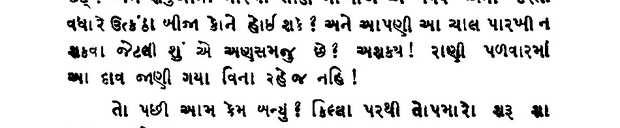 વધારે ઉત્કંઠા બીજા કોને હોઈ શકે? અને આપણી આ ચાલ પારખી ન
શકવા જેટલી શું એ અણસમજુ છે? અશકય! રાણી પળવારમાં
આ દાવ જાણી ગયા વિના રહેજ નહિ!
તો પછી આમ કેમ બન્યું? કિલ્લા પરથી તોપમારો શરૂ થા